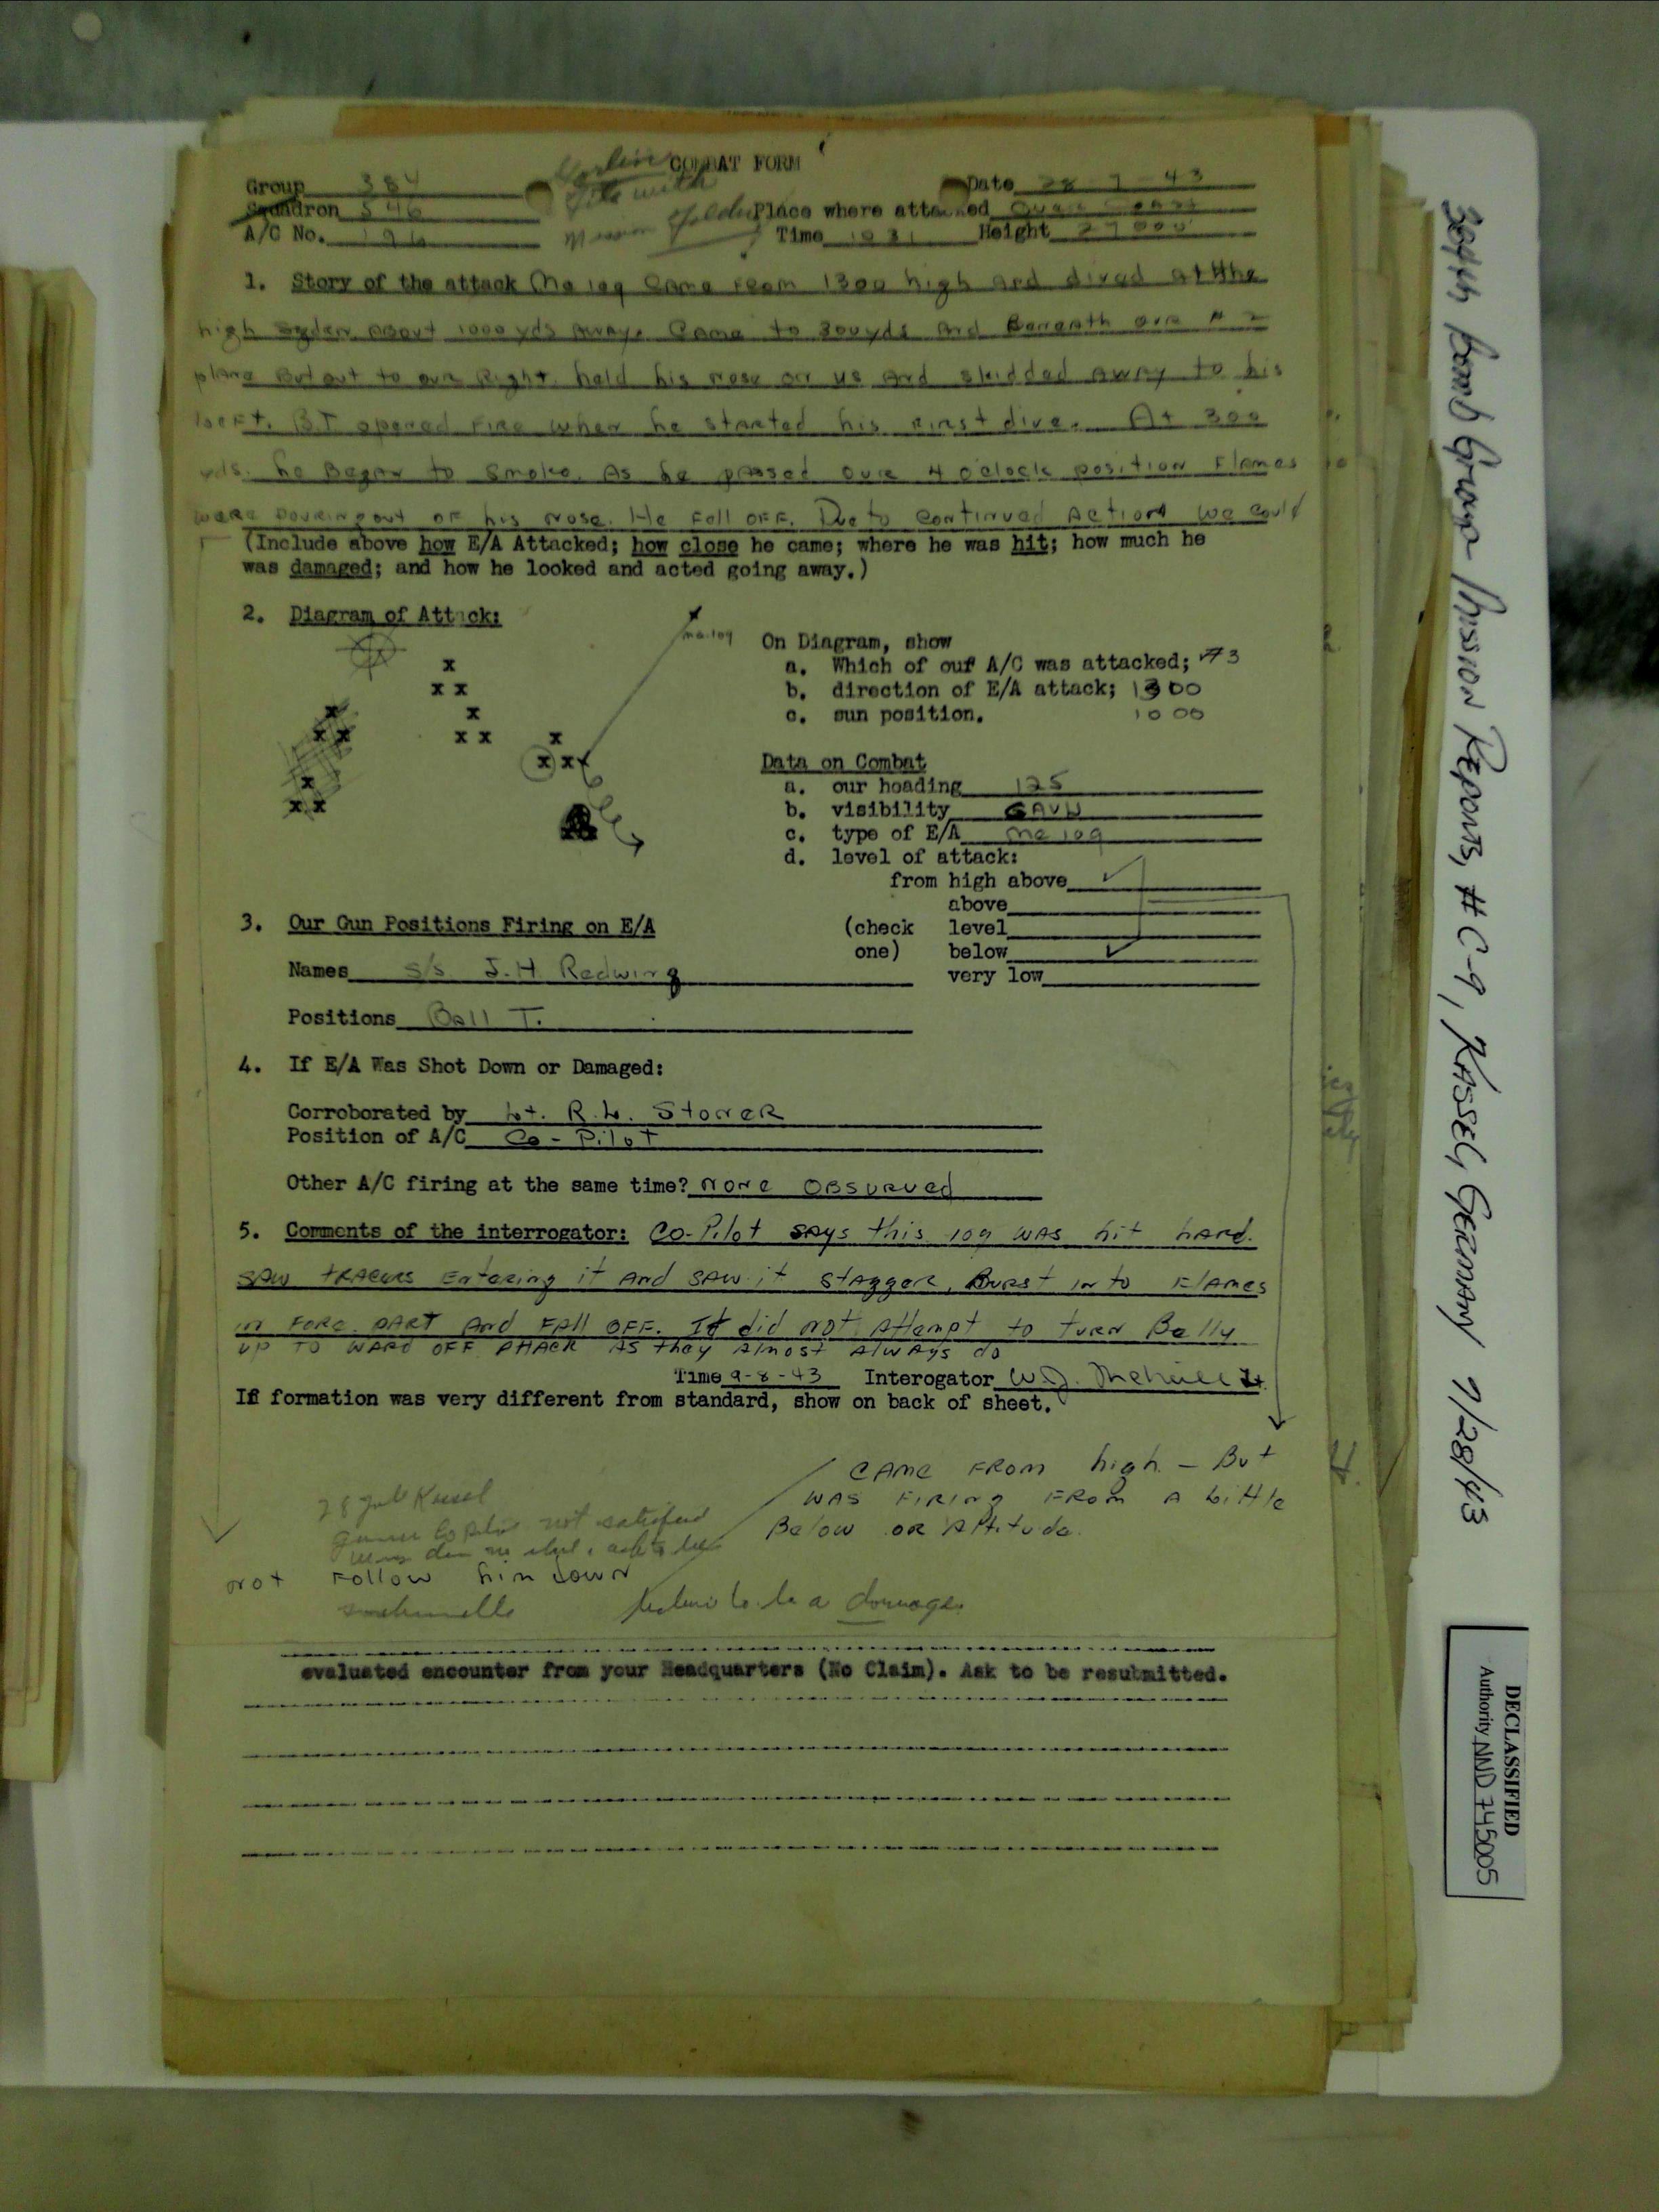 COMBAT FORM
file with
Group 384
Date 28-7-43
Squadron 546
Place where attacked Over
A/C No. 196
Mission
Time 1031 Height 27000'
1. Story of the attack Me 109 came from 1300 high and dived at the
high sqdn about 1000 yds away. Came to 300 yds and Beneath our # 2
plane But out to our Right, held his nose on us and skidded away to his
left. B.T. opened fire when he started his first dive. At 300
yds. he Began to smoke. As he passed our 4 oclock position Flames
were pouring out of his nose. He fell off. Due to continued action we could
(Include above how E/A Attacked; how close he came; where he was hit; how much he
was damaged; and how he looked and acted going away.)
2. Diagram of Attack:
me 109
x
x x
x
x x
x
x x
x
x x
x
x x
On Diagram, show
a. Which of our A/C was attacked; #3
b. direction of E/A attack; 1300
c. sun position. 1000
Data on Combat
a. our heading 125
b. visibility CAVU
c. type of E/A me 109
d. level of attack:
from high above ✓
above
(check level
one) below ✓
very low
3. Our Gun Positions Firing on E/A
Names S/S. J.H. Redwing
Positions Ball T.
4. If E/A Was Shot Down or Damaged:
Corroborated by Lt. R.W. Stoner
Position of A/C Co-Pilot
Other A/C firing at the same time? none obsurved
5. Comments of the interrogator: Co-Pilot says this 109 was hit hard.
saw tracers Entering it and saw it stagger, Burst into Flames
in fore part and fall off. It did not attempt to turn Belly
up to ward off attack as they almost always do
Time 9-8-43 Interogator W.J.
If formation was very different from standard, show on back of sheet.
came from high - But
was firing from a little
Below or Altitude.
28 July Kassel
not satisfied
not Follow him down
to be a damage.
evaluated encounter from your Headquarters (No Claim). Ask to be resubmitted.
384th Bomb Group Mission Reports, #C-9, Kassel, Germany 7/28/43
DECLASSIFIED
Authority NND 745005